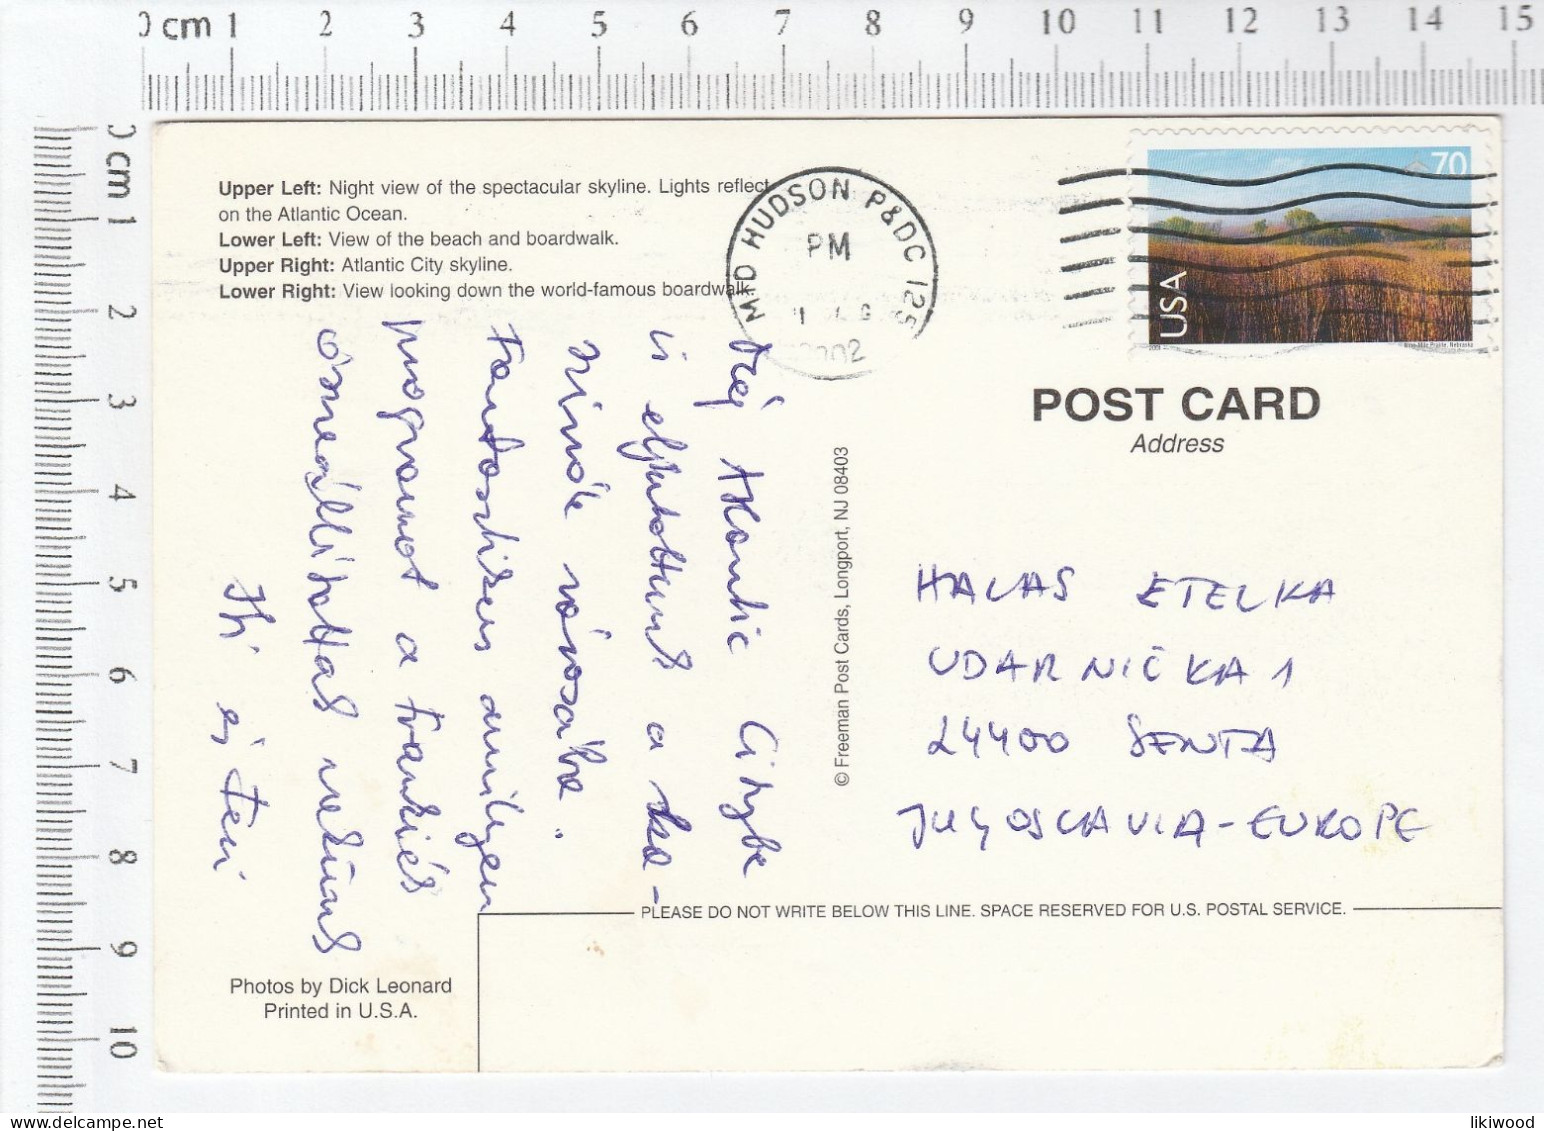 0 cm 1 2 3 4 5 6 7 8 9 10 11 12 13 14 15
0 cm 1 2 3 4 5 6 7 8 9 10
Upper Left: Night view of the spectacular skyline. Lights reflect
on the Atlantic Ocean.
Lower Left: View of the beach and boardwalk.
Upper Right: Atlantic City skyline.
Lower Right: View looking down the world-famous boardwalk.
MID HUDSON P&DC 125
PM
2002
70
USA
2001
Nine-Mile Prairie, Nebraska
POST CARD
Address
Még Atlantic Citybe
is eljutottunk a ka-
szinók városába.
Fantasztikus amilyen
programot a Frankiék
összeállítottak nekünk
Ili és Feri
© Freeman Post Cards, Longport, NJ 08403
HALAS ETELKA
UDARNIČKA 1
24400 SENTA
JUGOSLAVIA-EUROPE
PLEASE DO NOT WRITE BELOW THIS LINE. SPACE RESERVED FOR U.S. POSTAL SERVICE.
Photos by Dick Leonard
Printed in U.S.A.
likiwood